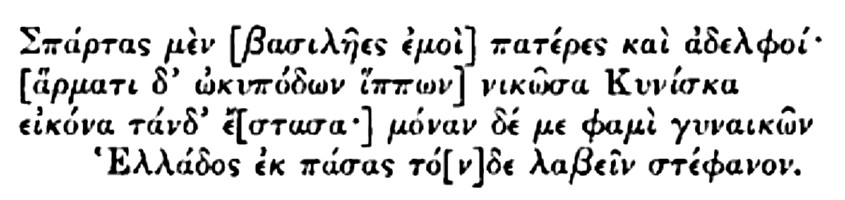 Σπάρτας μὲν [βασιλῆες ἐμοὶ] πατέρες καὶ ἀδελφοί·
[ἅρματι δ’ ὠκυπόδων ἵππων] νικῶσα Κυνίσκα
εἰκόνα τάνδ’ ἔ[στασα·] μόναν δέ με φαμὶ γυναικῶν
Ἑλλάδος ἐκ πάσας τό[ν]δε λαβεῖν στέφανον.